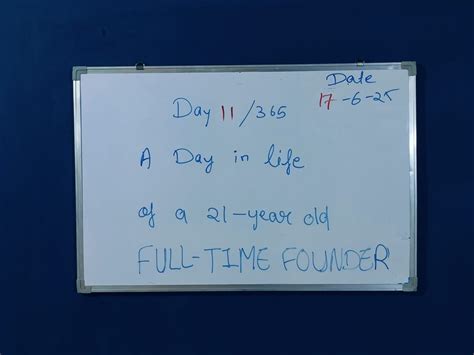 Date
17-6-25
Day 11/365
A Day in life
of a 21-year old
FULL-TIME FOUNDER